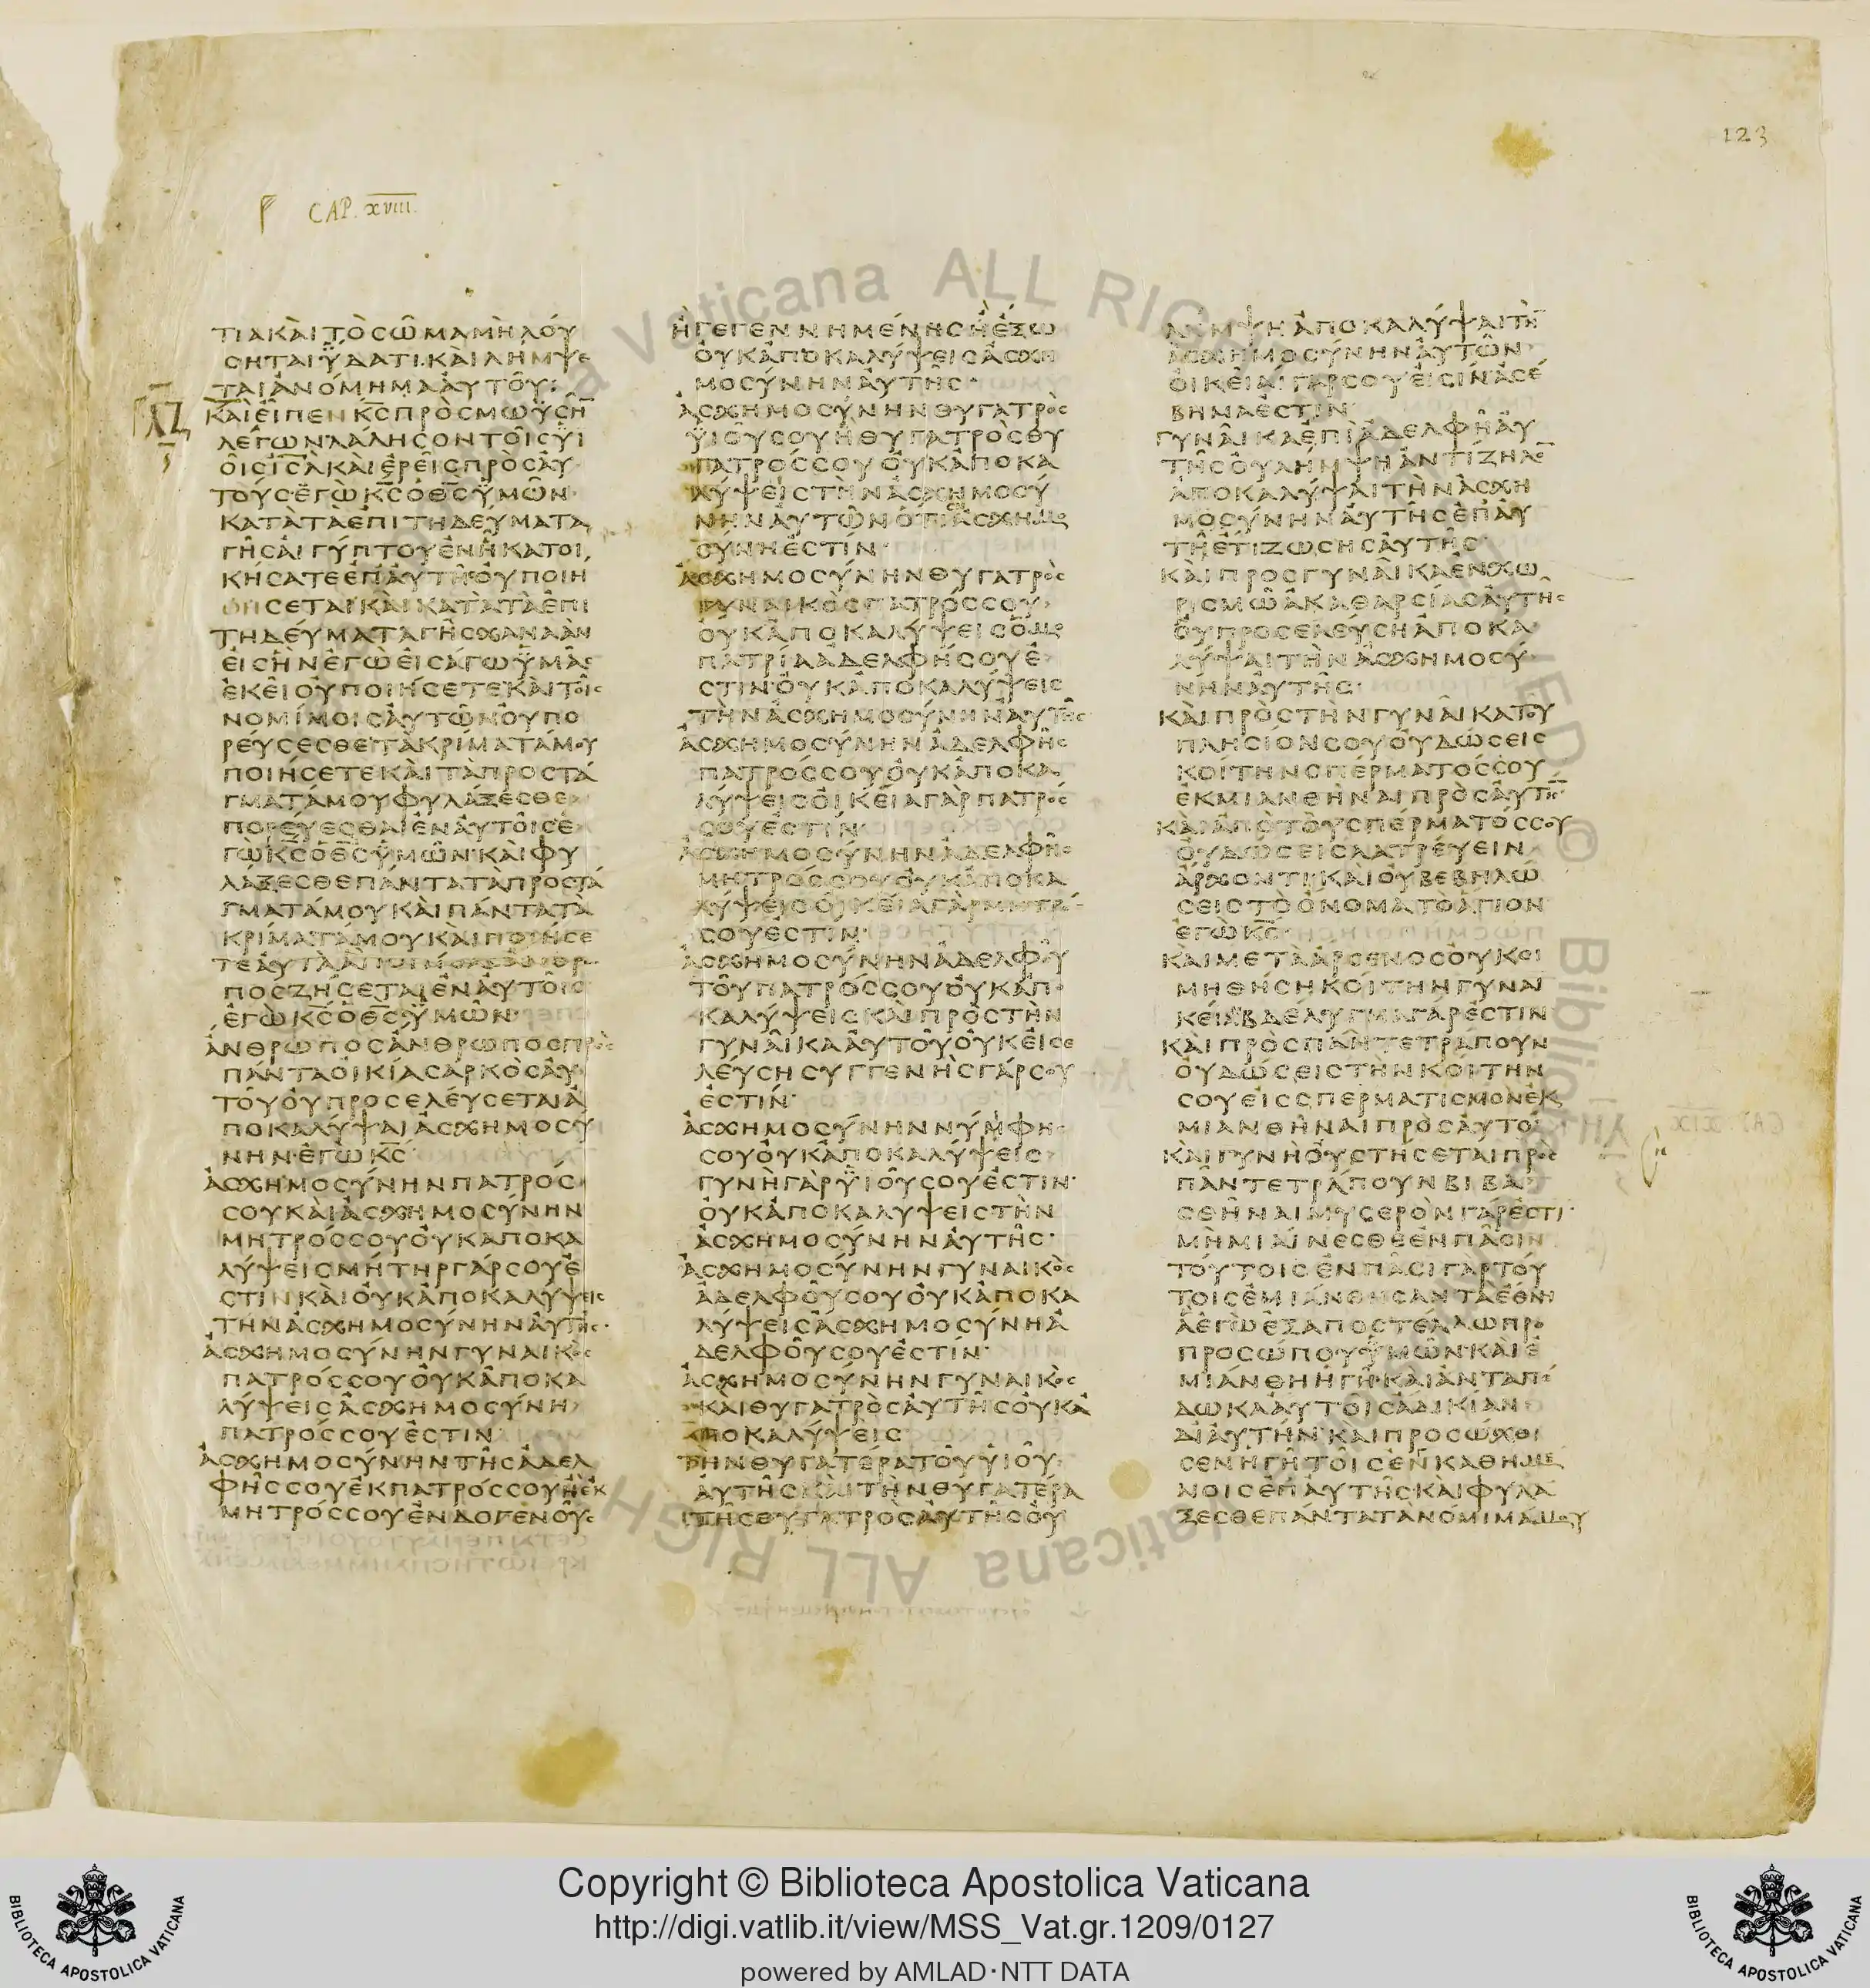 123
CAP. XVIII.
ΤΙΑΚΑΙΤΟСΩΜΑΜΗΛΟΥ
СΗΤΑΙΫΔΑΤΙ·ΚΑΙΛΗΜΨΕ
ΤΑΙΑΝΟΜΗΜΑΑΥΤΟΥ:
ΚΑΙΕΙΠΕΝΚ̅С̅ΠΡΟСΜΩΥСΗ̅
ΛΕΓΩΝΛΑΛΗСΟΝΤΟΙСΫΙ
ΟΙСΙ̅С̅Λ̅ΚΑΙΕΡΕΙСΠΡΟСΑΥ
ΤΟΥС·ΕΓΩΚ̅С̅ΟΘ̅С̅ΫΜΩΝ·
ΚΑΤΑΤΑΕΠΙΤΗΔΕΥΜΑΤΑ
ΓΗСΑΙΓΥΠΤΟΥΕΝΗΚΑΤΟΙ
ΚΗСΑΤΕΕΠΑΥΤΗ·ΟΥΠΟΙΗ
СΕΤΑΙΚΑΙΚΑΤΑΤΑΕΠΙ
ΤΗΔΕΥΜΑΤΑΓΗСΧΑΝΑΑΝ
ΕΙСΗΝΕΓΩΕΙСΑΓΩΫΜΑС
ΕΚΕΙΟΥΠΟΙΗСΕΤΕ·ΚΑΙΤΟΙС
ΝΟΜΙΜΟΙСΑΥΤΩΝΟΥΠΟ
ΡΕΥСΕСΘΕΤΑΚΡΙΜΑΤΑΜΟΥ
ΠΟΙΗСΕΤΕΚΑΙΤΑΠΡΟСΤΑ
ΓΜΑΤΑΜΟΥΦΥΛΑΞΕСΘΕ
ΠΟΡΕΥΕСΘΑΙΕΝΑΥΤΟΙСΕ
ΓΩΚ̅С̅ΟΘ̅С̅ΫΜΩΝ·ΚΑΙΦΥ
ΛΑΞΕСΘΕΠΑΝΤΑΤΑΠΡΟСΤΑ
ΓΜΑΤΑΜΟΥΚΑΙΠΑΝΤΑΤΑ
ΚΡΙΜΑΤΑΜΟΥΚΑΙΠΟΙΗСΕ
ΤΕΑΥΤΑΑΠΟΙΗСΑСΑΝΘΡΩ
ΠΟСΖΗСΕΤΑΙΕΝΑΥΤΟΙС
ΕΓΩΚ̅С̅ΟΘ̅С̅ΫΜΩΝ·
ΑΝΘΡΩΠΟСΑΝΘΡΩΠΟСΠΡΟС
ΠΑΝΤΑΟΙΚΙΑСΑΡΚΟСΑΥ
ΤΟΥΟΥΠΡΟСΕΛΕΥСΕΤΑΙΑ
ΠΟΚΑΛΥΨΑΙΑСΧΗΜΟСΥ
ΝΗΝ·ΕΓΩΚ̅С̅
ΑСΧΗΜΟСΥΝΗΝΠΑΤΡΟС
СΟΥΚΑΙΑСΧΗΜΟСΥΝΗΝ
ΜΗΤΡΟССΟΥΟΥΚΑΠΟΚΑ
ΛΥΨΕΙСΜΗΤΗΡΓΑΡСΟΥΕ
СΤΙΝΚΑΙΟΥΚΑΠΟΚΑΛΥΨΕΙС
ΤΗΝΑСΧΗΜΟСΥΝΗΝΑΥΤΗС·
ΑСΧΗΜΟСΥΝΗΝΓΥΝΑΙΚΟС
ΠΑΤΡΟССΟΥΟΥΚΑΠΟΚΑ
ΛΥΨΕΙСΑСΧΗΜΟСΥΝΗ
ΠΑΤΡΟССΟΥΕСΤΙΝ
ΑСΧΗΜΟСΥΝΗΝΤΗСΑΔΕΛ
ΦΗССΟΥΕΚΠΑΤΡΟССΟΥΗΕΚ
ΜΗΤΡΟССΟΥΕΝΔΟΓΕΝΟΥС
ΗΓΕΓΕΝΝΗΜΕΝΗСΗΕΞΩ
ΟΥΚΑΠΟΚΑΛΥΨΕΙСΑСΧΗ
ΜΟСΥΝΗΝΑΥΤΗС·
ΑСΧΗΜΟСΥΝΗΝΘΥΓΑΤΡΟС
ΫΙΟΥСΟΥΗΘΥΓΑΤΡΟСΘΥ
ΓΑΤΡΟССΟΥΟΥΚΑΠΟΚΑ
ΛΥΨΕΙСΤΗΝΑСΧΗΜΟСΥ
ΝΗΝΑΥΤΩΝΟΤΙСΗΑСΧΗΜΟ
СΥΝΗΕСΤΙΝ·
ΑСΧΗΜΟСΥΝΗΝΘΥΓΑΤΡΟС
ΓΥΝΑΙΚΟСΠΑΤΡΟССΟΥ
ΟΥΚΑΠΟΚΑΛΥΨΕΙСΟΜΟ
ΠΑΤΡΙΑΑΔΕΛΦΗСΟΥΕ
СΤΙΝ·ΟΥΚΑΠΟΚΑΛΥΨΕΙС
ΤΗΝΑСΧΗΜΟСΥΝΗΝΑΥΤΗС
ΑСΧΗΜΟСΥΝΗΝΑΔΕΛΦΗС
ΠΑΤΡΟССΟΥΟΥΚΑΠΟΚΑ
ΛΥΨΕΙСΟΙΚΕΙΑΓΑΡΠΑΤΡΟС
СΟΥΕСΤΙΝ·
ΑСΧΗΜΟСΥΝΗΝΑΔΕΛΦΗС
ΜΗΤΡΟССΟΥΟΥΚΑΠΟΚΑ
ΛΥΨΕΙСΟΙΚΕΙΑΓΑΡΜΗΤΡΟС
СΟΥΕСΤΙΝ·
ΑСΧΗΜΟСΥΝΗΝΑΔΕΛΦΟΥ
ΤΟΥΠΑΤΡΟССΟΥΟΥΚΑΠΟ
ΚΑΛΥΨΕΙСΚΑΙΠΡΟСΤΗΝ
ΓΥΝΑΙΚΑΑΥΤΟΥΟΥΚΕΙСΕ
ΛΕΥСΗСΥΓΓΕΝΗСΓΑΡСΟΥ
ΕСΤΙΝ·
ΑСΧΗΜΟСΥΝΗΝΝΥΜΦΗС
СΟΥΟΥΚΑΠΟΚΑΛΥΨΕΙС
ΓΥΝΗΓΑΡΫΙΟΥСΟΥΕСΤΙΝ·
ΟΥΚΑΠΟΚΑΛΥΨΕΙСΤΗΝ
ΑСΧΗΜΟСΥΝΗΝΑΥΤΗС·
ΑСΧΗΜΟСΥΝΗΝΓΥΝΑΙΚΟС
ΑΔΕΛΦΟΥСΟΥΟΥΚΑΠΟΚΑ
ΛΥΨΕΙСΑСΧΗΜΟСΥΝΗΑ
ΔΕΛΦΟΥСΟΥΕСΤΙΝ·
ΑСΧΗΜΟСΥΝΗΝΓΥΝΑΙΚΟС
ΚΑΙΘΥΓΑΤΡΟСΑΥΤΗСΟΥΚΑ
ΠΟΚΑΛΥΨΕΙС
ΤΗΝΘΥΓΑΤΕΡΑΤΟΥΥΙΟΥ
ΑΥΤΗСΚΑΙΤΗΝΘΥΓΑΤΕΡΑ
ΤΗСΘΥΓΑΤΡΟСΑΥΤΗСΟΥ
ΛΗΜΨΗΑΠΟΚΑΛΥΨΑΙΤΗ̅
ΑСΧΗΜΟСΥΝΗΝΑΥΤΩΝ
ΟΙΚΕΙΑΙΓΑΡСΟΥΕΙСΙΝΑСΕ
ΒΗΜΑΕСΤΙΝ
ΓΥΝΑΙΚΑΕΠΙΑΔΕΛΦΗΑΥ
ΤΗСΟΥΛΗΜΨΗΑΝΤΙΖΗΛΟ̅
ΑΠΟΚΑΛΥΨΑΙΤΗΝΑСΧΗ
ΜΟСΥΝΗΝΑΥΤΗСΕΠΑΥ
ΤΗΕΤΙΖΩСΗСΑΥΤΗС
ΚΑΙΠΡΟСΓΥΝΑΙΚΑΕΝΧΩ
ΡΙСΜΩΑΚΑΘΑΡСΙΑСΑΥΤΗС
ΟΥΠΡΟСΕΛΕΥСΗΑΠΟΚΑ
ΛΥΨΑΙΤΗΝΑСΧΗΜΟСΥ
ΝΗΝΑΥΤΗС·
ΚΑΙΠΡΟСΤΗΝΓΥΝΑΙΚΑΤΟΥ
ΠΛΗСΙΟΝСΟΥΟΥΔΩСΕΙС
ΚΟΙΤΗΝСΠΕΡΜΑΤΟССΟΥ
ΕΚΜΙΑΝΘΗΝΑΙΠΡΟСΑΥΤΗ̅
ΚΑΙΑΠΟΤΟΥСΠΕΡΜΑΤΟССΟΥ
ΟΥΔΩСΕΙСΛΑΤΡΕΥΕΙΝ
ΑΡΧΟΝΤΙ·ΚΑΙΟΥΒΕΒΗΛΩ
СΕΙСΤΟΟΝΟΜΑΤΟΑΓΙΟΝ
ΕΓΩΚ̅С̅·
ΚΑΙΜΕΤΑΑΡСΕΝΟСΟΥΚΟΙ
ΜΗΘΗСΗΚΟΙΤΗΗΓΥΝΑΙ
ΚΕΙΑΒΔΕΛΥΓΜΑΓΑΡΕСΤΙΝ
ΚΑΙΠΡΟСΠΑΝΤΕΤΡΑΠΟΥΝ
ΟΥΔΩСΕΙСΤΗΝΚΟΙΤΗΝ
СΟΥΕΙССΠΕΡΜΑΤΙСΜΟΝΕΚ
ΜΙΑΝΘΗΝΑΙΠΡΟСΑΥΤΟ·
ΚΑΙΓΥΝΗΟΥСΤΗСΕΤΑΙΠΡΟС
ΠΑΝΤΕΤΡΑΠΟΥΝΒΙΒΑ
СΘΗΝΑΙΜΥСΕΡΟΝΓΑΡΕСΤΙ·
ΜΗΜΙΑΙΝΕСΘΕΕΝΠΑСΙΝ
ΤΟΥΤΟΙСΕΝΠΑСΙΓΑΡΤΟΥ
ΤΟΙСΕΜΙΑΝΘΗСΑΝΤΑΕΘΝΗ
ΑΕΓΩΕΞΑΠΟСΤΕΛΛΩΠΡΟ
ΠΡΟСΩΠΟΥΫΜΩΝ·ΚΑΙΕ
ΜΙΑΝΘΗΗΓΗ·ΚΑΙΑΝΤΑΠΕ
ΔΩΚΑΑΥΤΟΙСΑΔΙΚΙΑΝ
ΔΙΑΥΤΗΝ·ΚΑΙΠΡΟСΩΧΘΙ
СΕΝΗΓΗΤΟΙСΕΝΚΑΘΗΜΕ
ΝΟΙСΕΠΑΥΤΗСΚΑΙΦΥΛΑ
ΞΕСΘΕΠΑΝΤΑΤΑΝΟΜΙΜΑΜΟΥ
Copyright © Biblioteca Apostolica Vaticana
http://digi.vatlib.it/view/MSS_Vat.gr.1209/0127
powered by AMLAD·NTT DATA
BIBLIOTECA APOSTOLICA VATICANA
BIBLIOTECA APOSTOLICA VATICANA